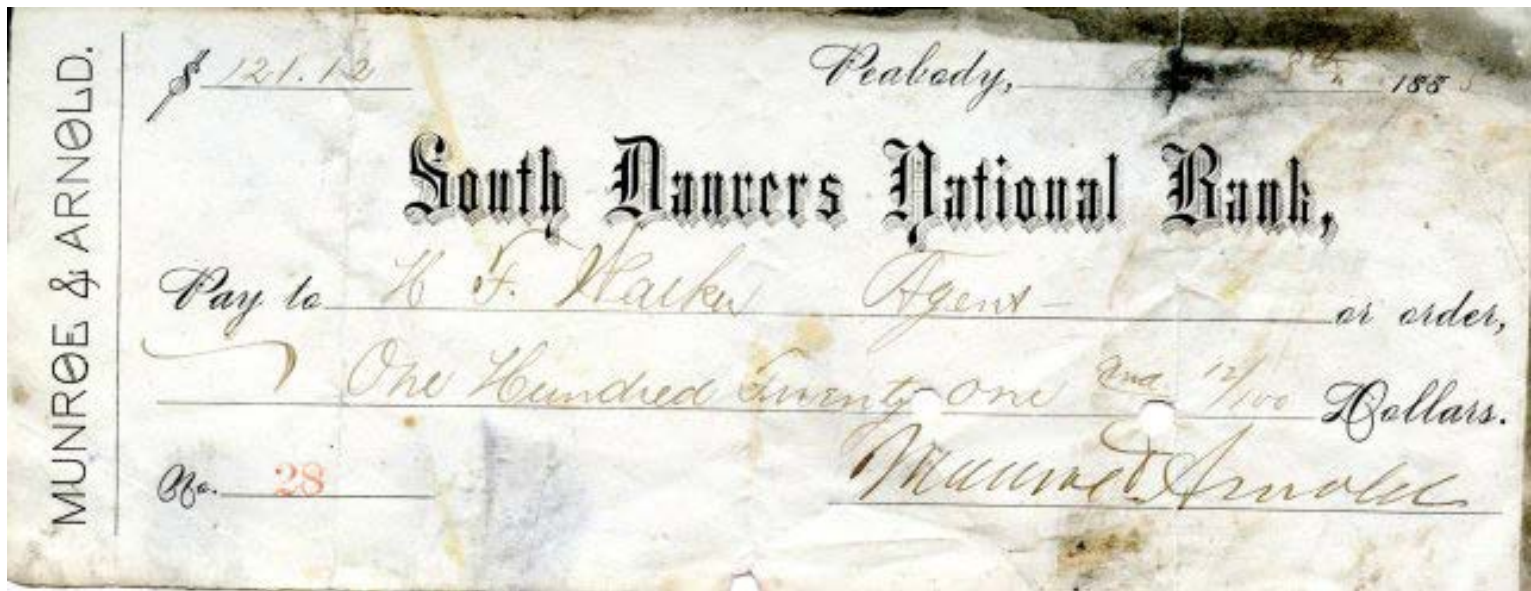 MUNROE & ARNOLD.
$ 121.12 Peabody, 8th 188
South Danvers National Bank,
Pay to H F. Walker Agent - or order,
One Hundred Twenty one and 12/100 Dollars.
No. 28 Munroe & Arnold